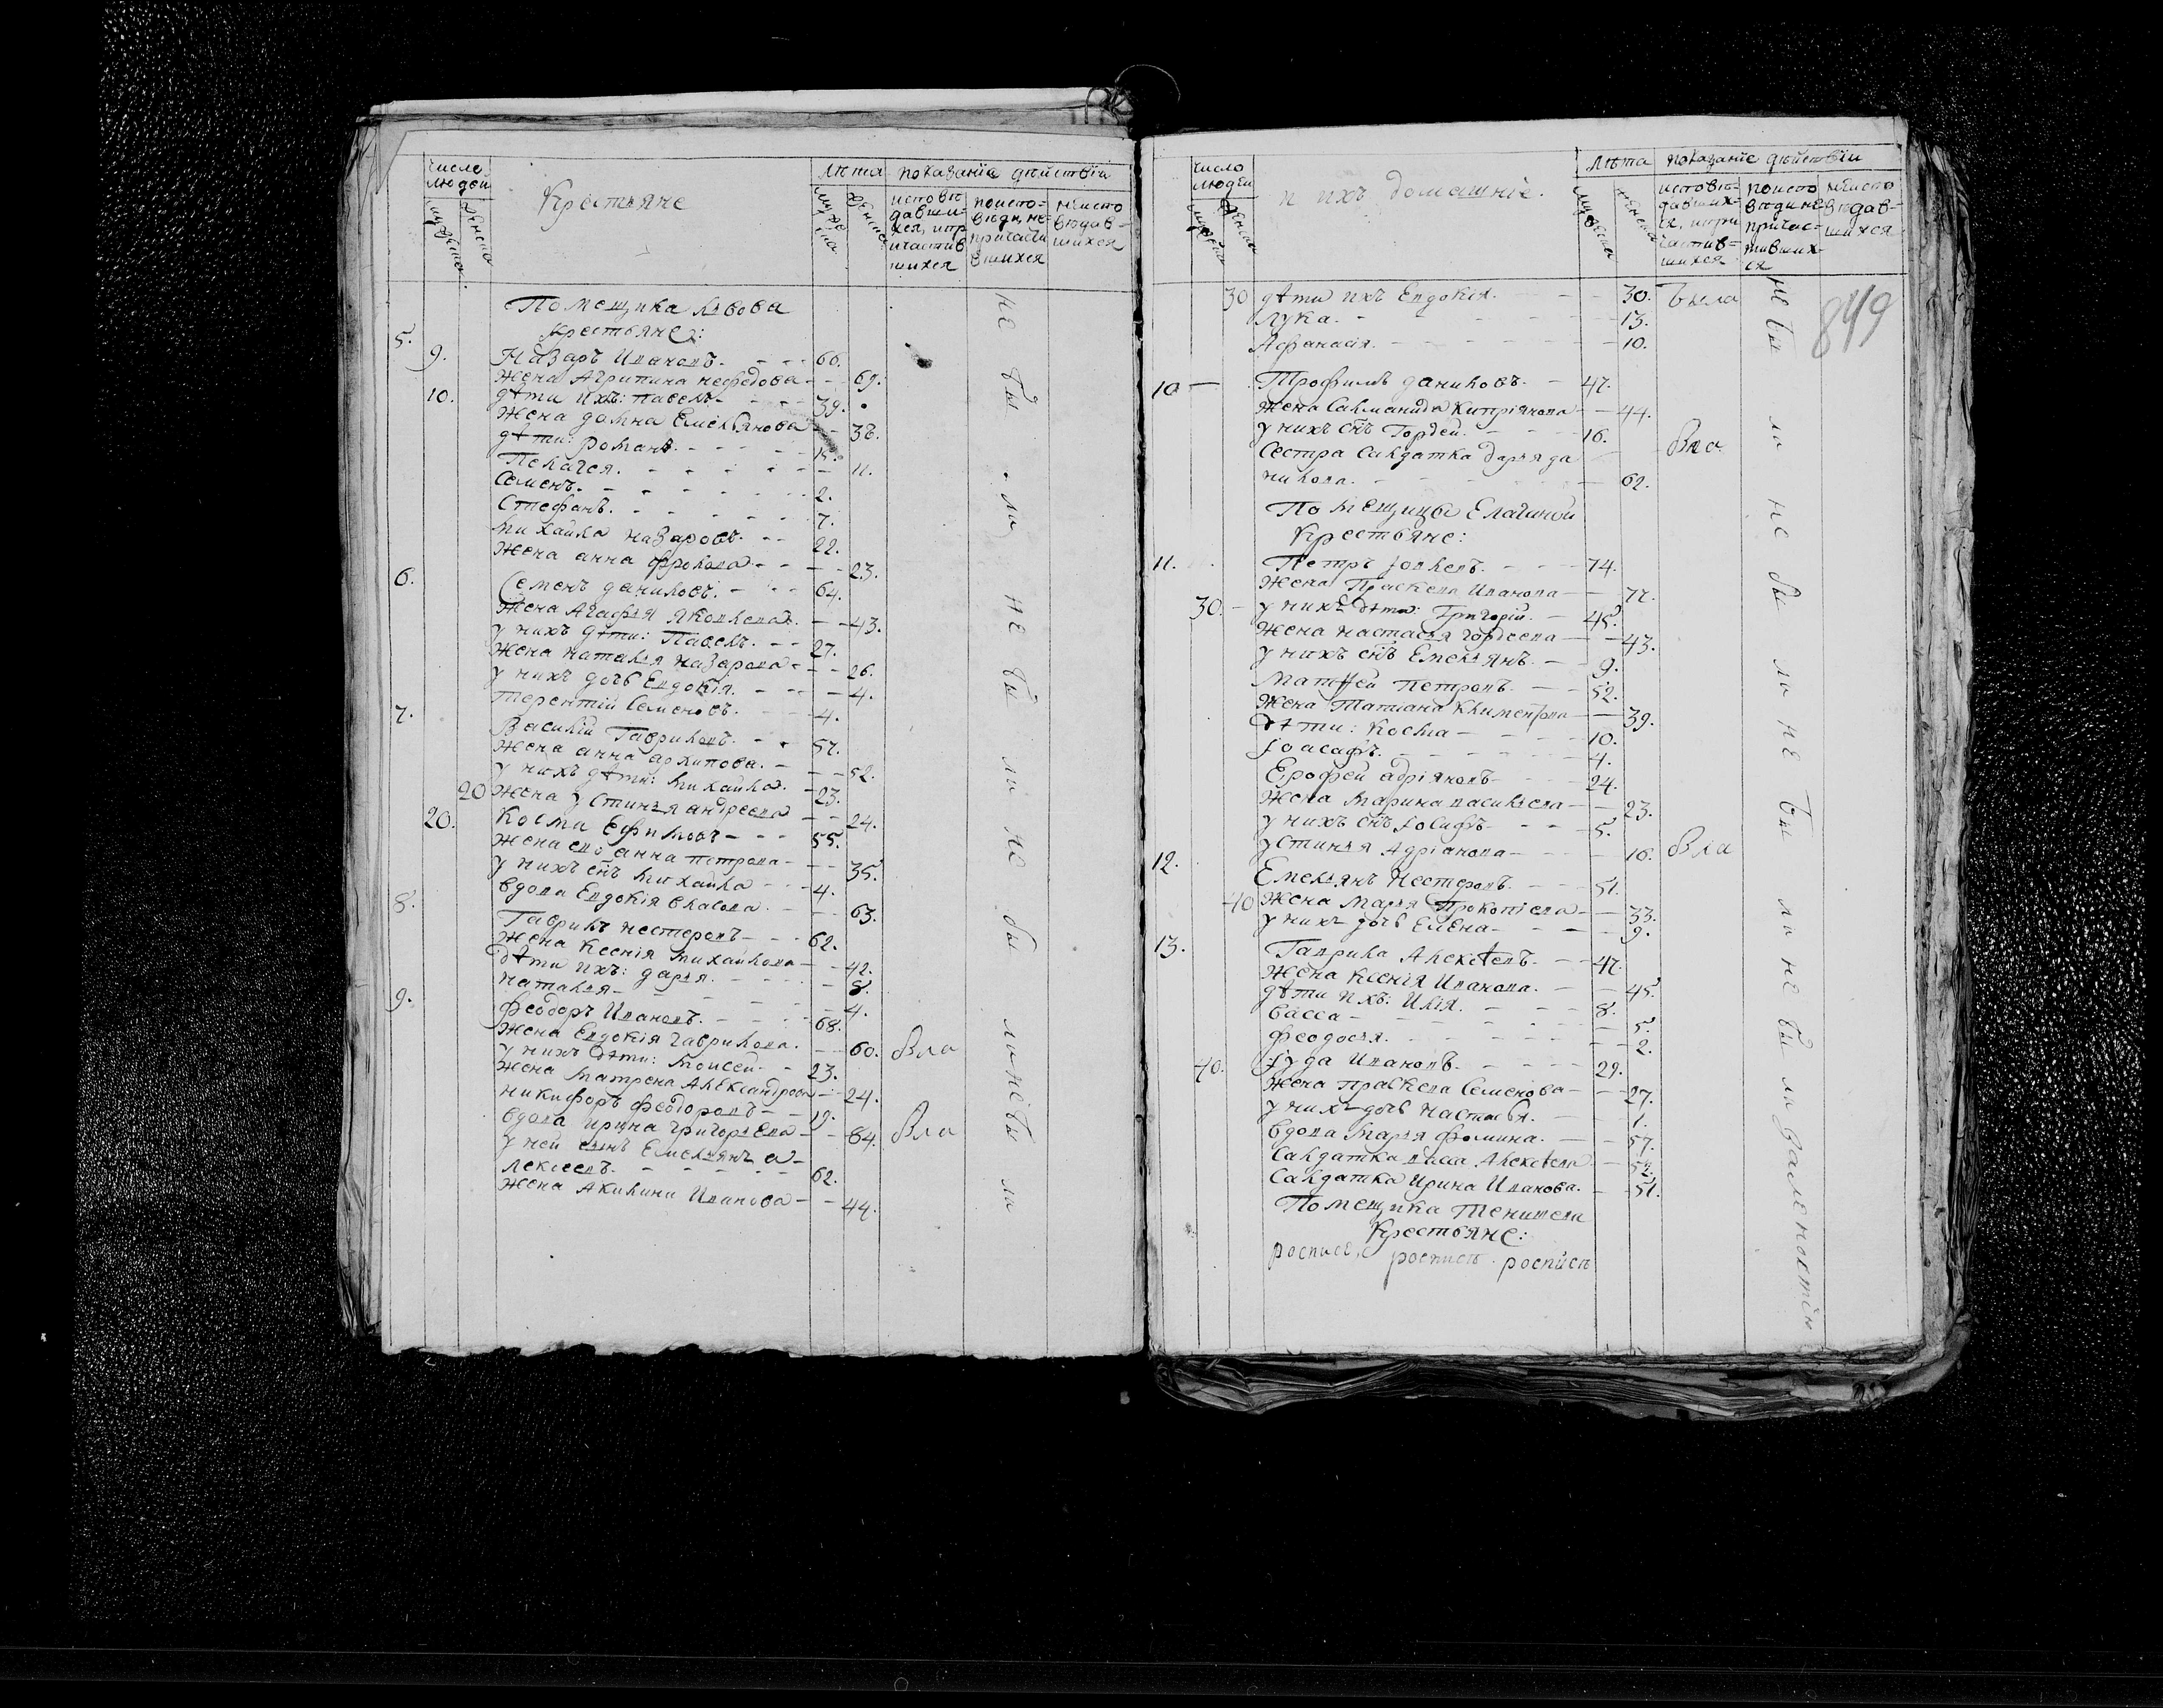 число людей
Крестьяне
лѣта
показаніе дѣйствіи
мужеска
женска
мужеска
женска
исповѣдавшихся, и причастившихся
по исповѣди, не причастившихся
не исповѣдавшихся
Помещика Львова
крестьяне:
5. 9. Назаръ Ивановъ. 66.
жена Агрипина нефедова 69.
10. дѣти ихъ: павелъ 39.
жена домна Емельянова 38.
дѣти: романъ. 15.
Пелагея. 11.
Семенъ. 2.
Стефанъ. 7.
михайла назаровъ. 22.
жена анна фролова 23.
6. Семенъ даниловъ. 64.
жена Агафья Яковлева. 43.
у нихъ дѣти: Павелъ. 27.
жена наталья назарова 26.
у нихъ дочь Евдокія. 4.
терентій Семеновъ. 4.
7. Василій Гавриловъ. 57.
жена анна архипова. 52.
у нихъ дѣти: михайла. 23.
20 жена устинья андреева 24.
20. Косма Ефимовъ 55.
жена ево анна петрова 35.
у нихъ снъ михайла 4.
вдова Евдокія власова. 63.
8. Гаврилъ нестеровъ 62.
жена ксенія михайлова 42.
дѣти ихъ: дарья. 8.
наталья 4.
9. феодоръ Ивановъ. 68.
жена Евдокія гаврилова. 60. Была
у нихъ дѣти: моисей 23.
жена матрена Александрова 24.
никифоръ феодоровъ 19.
вдова ирина григорьева 84. Была
у ней сынъ Емельянъ а-
лексеевъ. 62.
жена Акилина Иванова 44.
не бы ла не бы ла не бы ла не бы ла
число людей
и ихъ домашніе.
лѣта
показаніе дѣйствіи
мужеска
женска
мужеска
женска
исповѣдавшихся, и причастившихся
по исповѣди не причастившихся
не исповѣдавшихся
849
30 дѣти ихъ Евдокія. 30. Была
Лука. 13.
Афанасія. 10.
10 Трофимъ даниловъ. 47.
жена Саломанида Кипріянова 44.
у нихъ снъ Гордей. 16.
Сестра Салдатка дарья да Была
нилова. 62.
Помещицы Елагиной
Крестьяне:
11. Петръ Іовлевъ. 74.
жена Праскева Иванова 72.
30. у нихъ дѣти: Григорій. 45.
жена настасья гордеева 43.
у нихъ снъ Емельянъ. 9.
Матѳей Петровъ. 52.
жена Татіана Климентова 39.
дѣти: Косма 10.
Іоасафъ. 4.
Ерофей адріяновъ 24.
жена Марина васильева 23.
у нихъ снъ Іосифъ 5.
устинья Адріанова 16. Была
12. Емельянъ Нестеровъ. 51.
40 жена Марья Прокопіева 33.
у нихъ дочь Елена 9.
13. Гаврила Алексѣевъ. 47.
жена Ксенія Иванова. 45.
дѣти ихъ: Илія. 8.
Васса 5.
Феодосья. 2.
40. Іуда Ивановъ. 29.
жена праскева Семенова 27.
у нихъ дочь настасья. 1.
вдова Марья Фомина. 57.
Салдатка васса Алексѣева 52.
Салдатка Ирина Иванова. 51.
Помещика Тенишева
Крестьяне:
роспись роспись роспись
не бы ла не бы ла не бы ла не бы ла за леностію